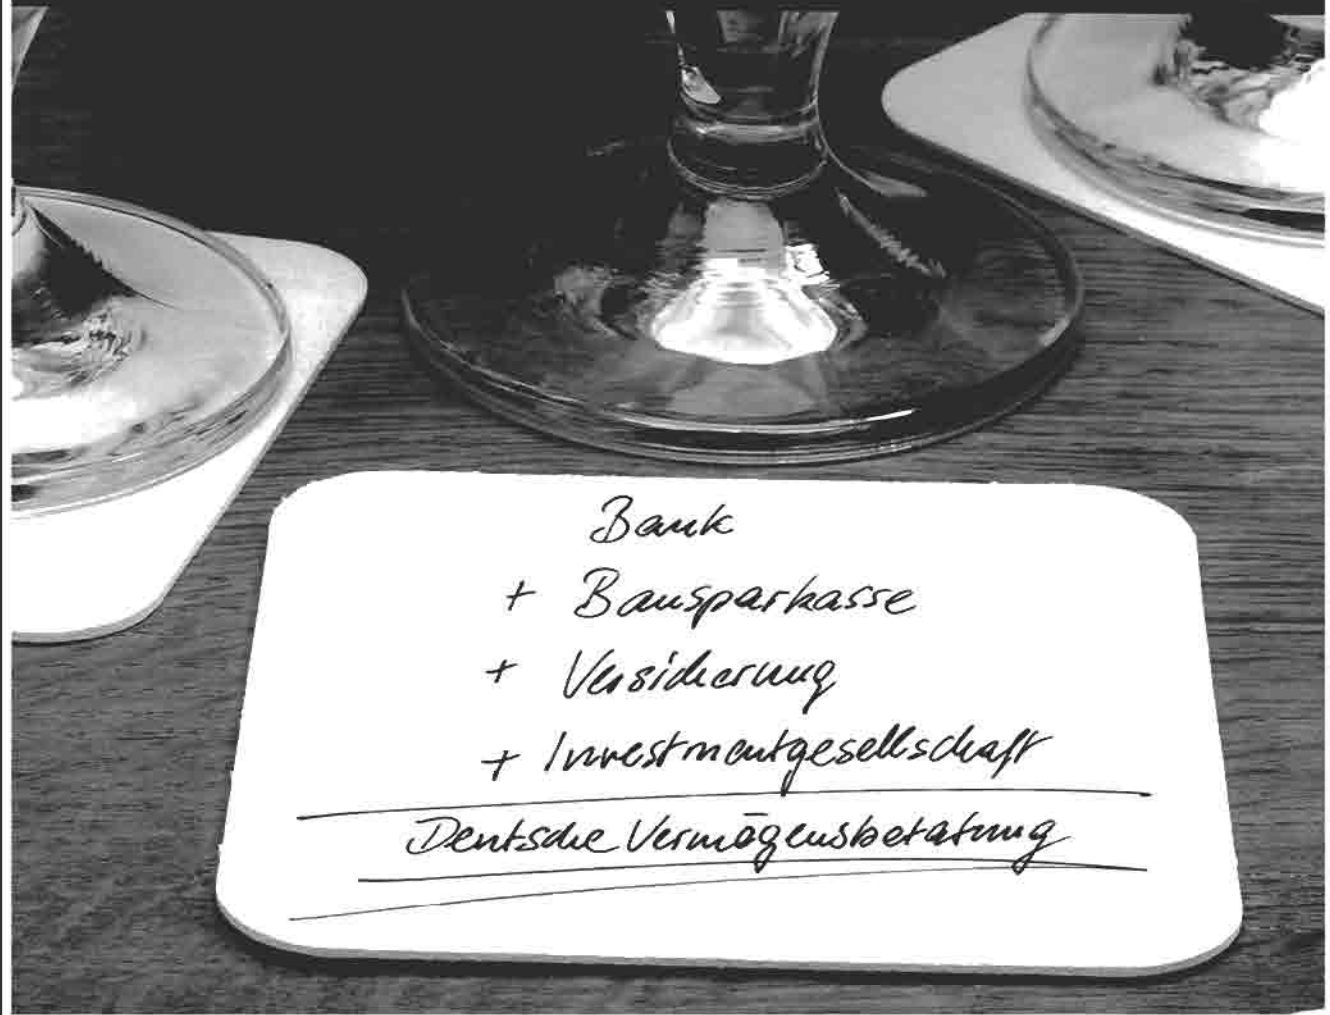 Bank
+ Bausparkasse
+ Versicherung
+ Investmentgesellschaft
Deutsche Vermögensberatung